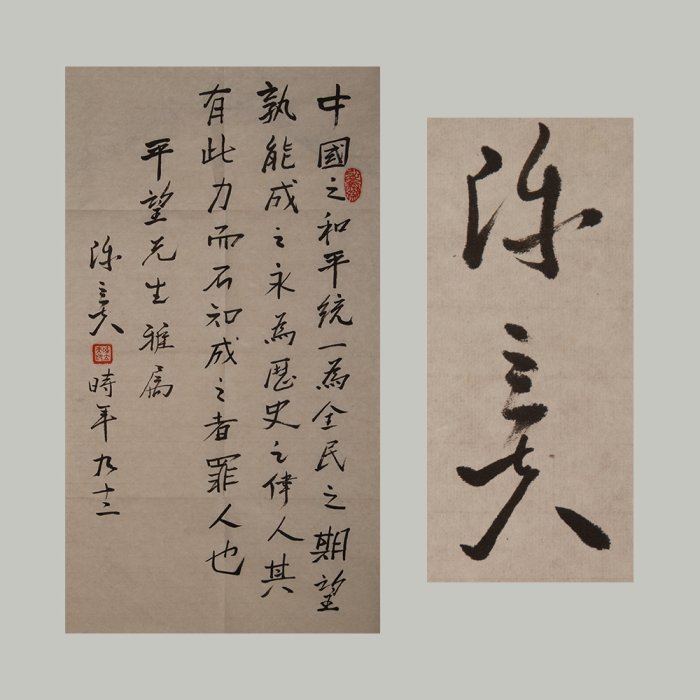 中國之和平統一為全民之期望
孰能成之永為歷史之偉人其
有此力而不知成之者罪人也
平望先生雅属
陳立夫 時年九十二
陳立夫